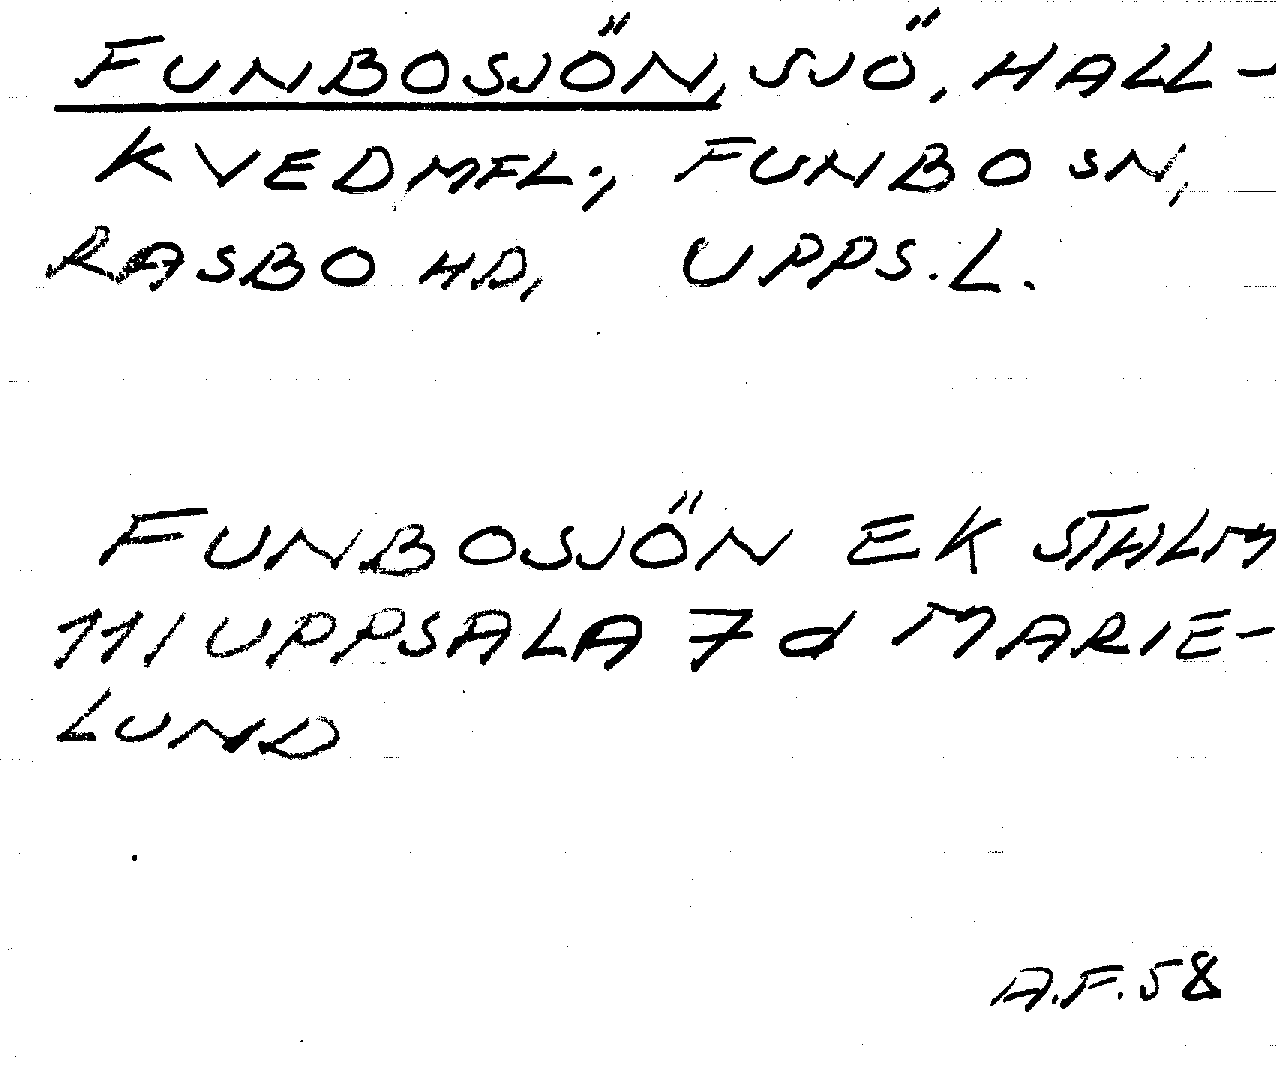 FUNBOSJÖN, SJÖ, HALL-
KVED MFL., FUNBO SN,
RASBO HD, UPPS.L.
FUNBOSJÖN EK STHLM
111 UPPSALA 7 d MARIE-
LUND
A.F. 58